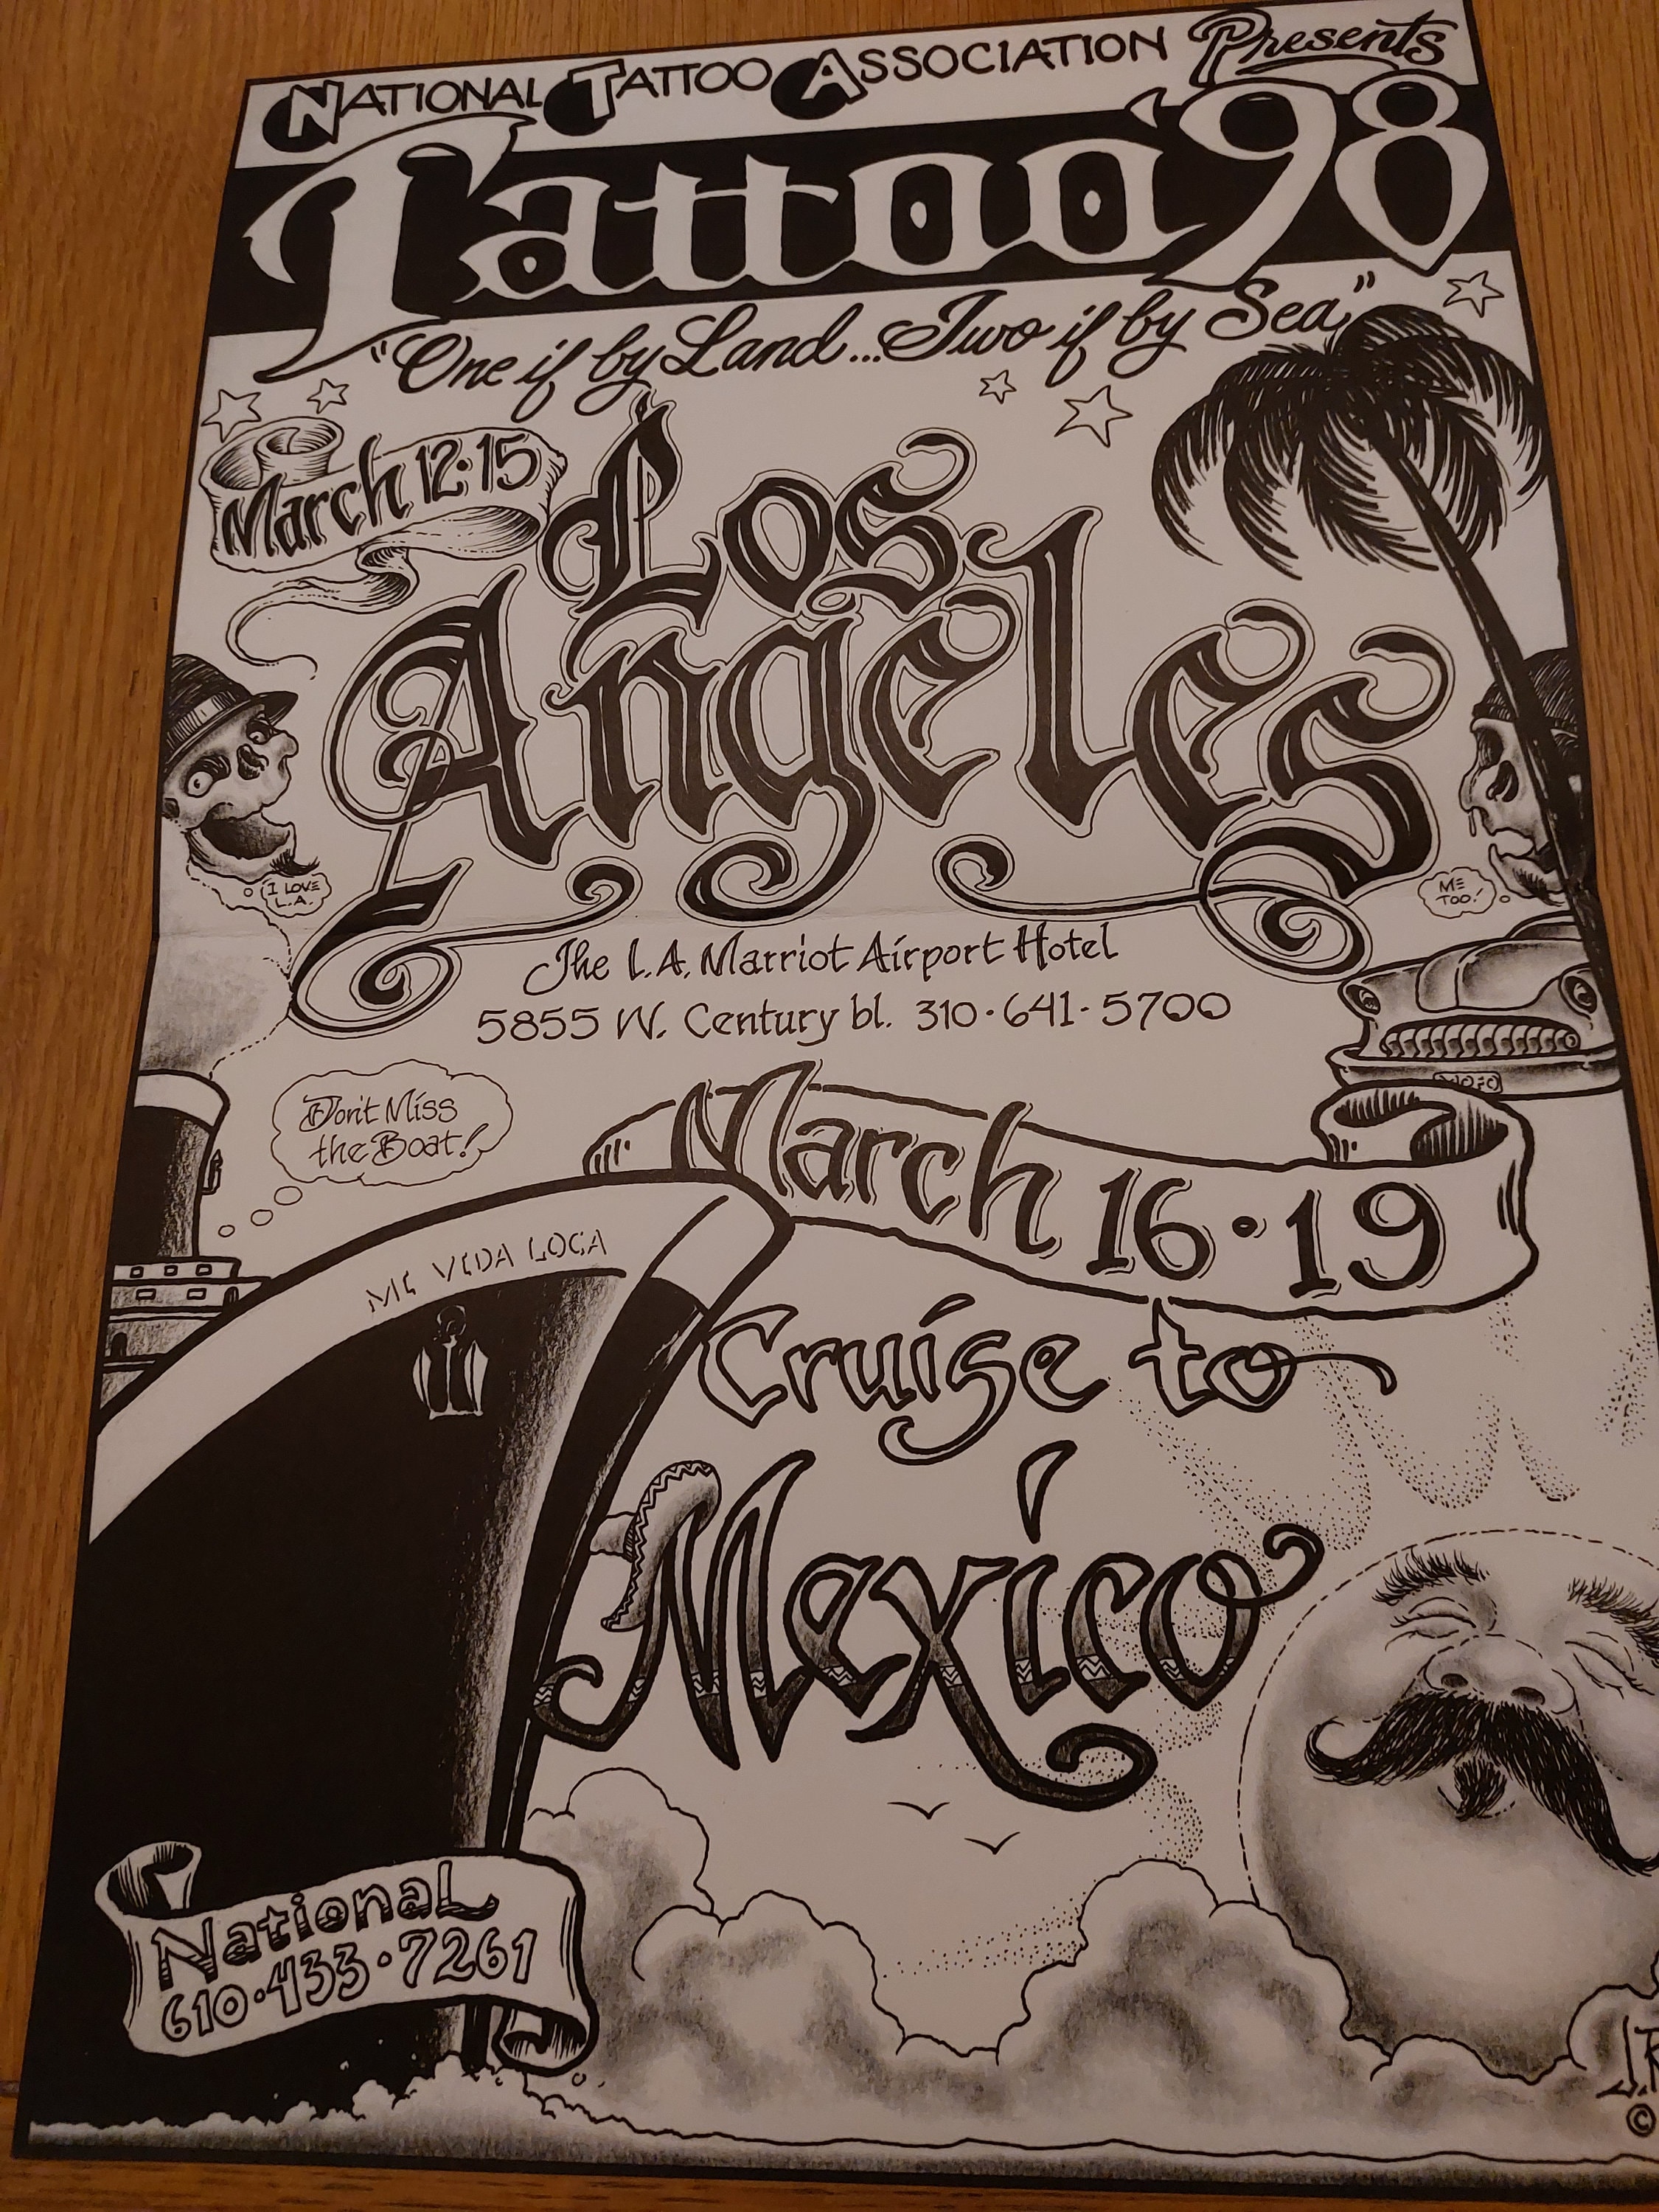 NATIONAL TATTOO ASSOCIATION Presents
Tattoo '98
"One if by Land...Two if by Sea"
March 12·15
Los
Angeles
I LOVE
L.A.
ME
TOO!
The L.A. Marriot Airport Hotel
5855 W. Century bl. 310·641·5700
Don't Miss
the Boat!
March 16·19
MI VIDA LOCA
Cruise to
Mexico
National
610·433·7261
©